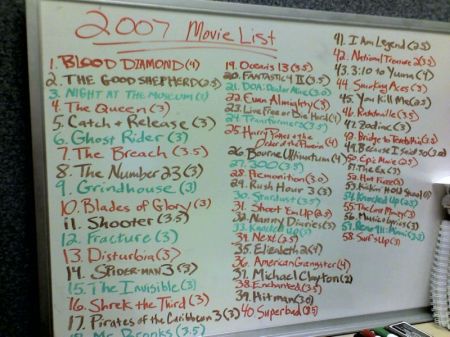 2007 Movie List
1. BLOOD DIAMOND (4)
2. THE GOOD SHEPHERD (2.5)
3. NIGHT AT THE MUSEUM (3)
4. The Queen (3)
5. Catch & Release (3)
6. Ghost Rider (3)
7. The Breach (3.5)
8. The Number 23 (3)
9. Grindhouse (3)
10. Blades of Glory (3)
11. Shooter (3.5)
12. Fracture (3)
13. Disturbia (3)
14. SPIDER-MAN 3 (3)
15. The Invisible (3)
16. Shrek the Third (3)
17. Pirates of the Caribbean 3 (3)
18. Mr. Brooks (3.5)
19. Ocean's 13 (3.5)
20. FANTASTIC 4 II (3.5)
21. DOA: Dead or Alive (3.0)
22. Evan Almighty (3)
23. Live Free or Die Hard (4)
24. Transformers (3.5)
25. Harry Potter & the Order of the Phoenix (4)
26. Bourne Ultimatum (4)
27. 300 (3.5)
28. Premonition (3.0)
29. Rush Hour 3 (3)
30. Stardust (3.5)
31. Shoot Em Up (2.5)
32. Nanny Diaries (3)
33. Knocked Up
34. Next (3.5)
35. Elizabeth 2 (4)
36. American Gangster (4)
37. Michael Clayton (2)
38. Enchanted (3.5)
39. Hitman (3.0)
40 Superbad (2.5)
41. I Am Legend (2.5)
42. National Treasure 2 (3.5)
43. 3:10 to Yuma (4)
44 Smoking Aces (3)
45. You Kill Me (2.5)
46. Ratatouille (3.5)
47. Zodiac (3)
48. Bridge to Terabithia
49. Because I Said So (3.0)
50. Epic Movie (2.5)
51. The Ex (3)
52. Hot Fuzz
53. Kickin It Old Skool
54. Knocked Up
55. The Last Mimzy (3)
56. Music & Lyrics (3)
57. Reno 911: Miami
58. Surf's Up (3)